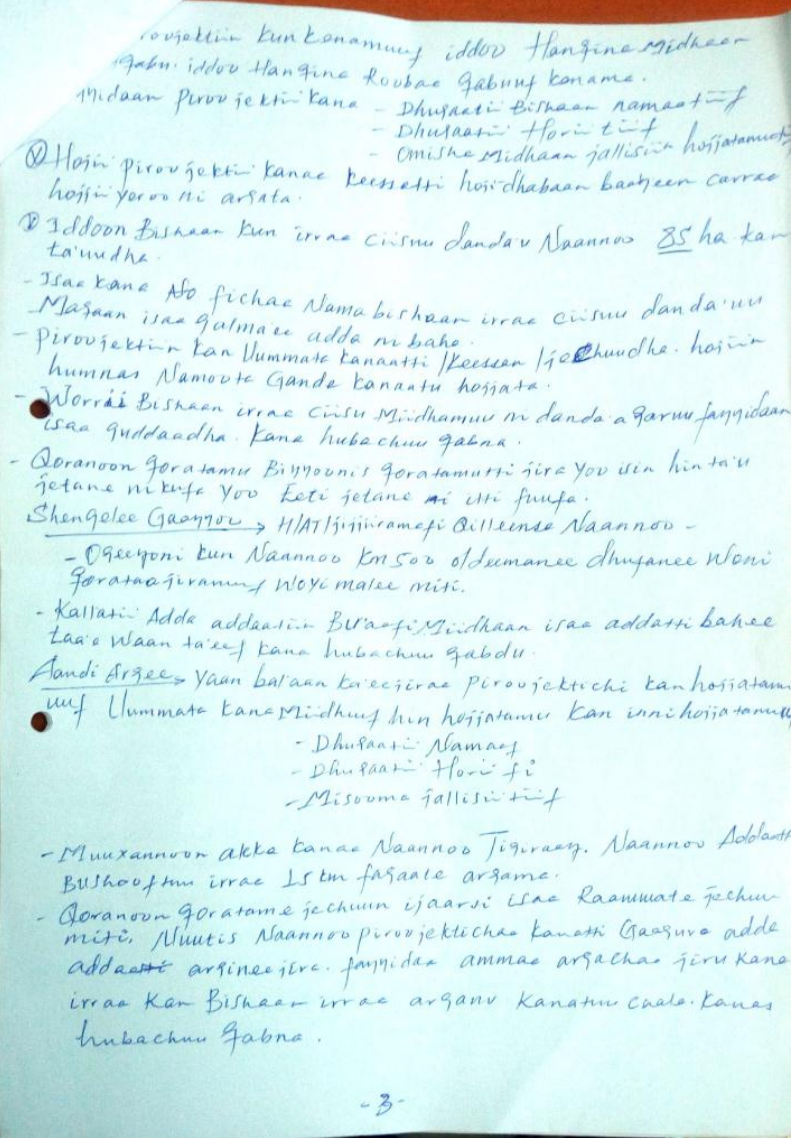 kun kenamuuf iddoo Hangina Midhaan
qabu. iddoo Hangina Roobaa qabuuf kename.
Piroojektii kana - Dhugaatii Bishaan namaatiif
- Dhugaatii Horii tiif
- Omisha Midhaan jallisiin hojjatamuuti
Hojii piroojektii kanaa keessatti hojidhabaan baayʼeen carraa
hojjii yeroo ni argata.
Iddoon Bishaan kun irraa ciisuu danda'u Naannoo 85 ha kan
ta'uudha.
- Isaa kana Nama bishaan irraa ciisuu danda'uu
Magaan isaa galma'ee adda ni baha.
- Piroojektiin kan Uummata kanaatti /keessan /jechuudha. hojiin
humnas Namoota Ganda kanaatu hojjata.
- Worrii Bishaan irraa ciisu Miidhamuu ni danda'a garuu fayyidaan
isaa guddaadha. kana hubachuu qabna.
- Qorannoon qoratamu Biyyoonis qoratamutti jira yoo isin hin ta'u
jetane ni kufa yoo Eeti jetane itti fuufa.
Shengelee Gaayyoo → H/AT/jijjiiramafi Qilleensa Naannoo -
- Ogeeyoni kun Naannoo km 500 ol deemanee dhufanee Woni
qorataa jiranuuf Woyi malee miti.
- Kallatii Adda addaatiin Bu'aafi Miidhaan isaa addatti bahee
taa'a Waan ta'eef kana hubachuu qabdu.
Aandi Argee → yaan bal'aan ka'ee jiraa Piroojektichi kan hojjatamu
uuf Uummata kana Miidhuuf hin hojjatamu kan inni hojjatamuuf
- Dhugaatii Namaaf
- Dhugaatii Horii fi
- Misooma jallisii tiif
- Muuxannoon akka kanaa Naannoo Tigiraay. Naannoo Addaatti
Bushooftuu irraa 15 km fagaate argama.
- Qorannoon qoratame jechuun ijaarsi isaa Raawwate jechuu
miti. Nuutis Naannoo piroojektichaa kanatti Gaagura adda
addaa arginee jirra. fayyidaa ammaa argachaa jiru kana
irraa kan Bishaan irraa argannu kanatuu caala. kanas
hubachuu qabna.
- 3 -